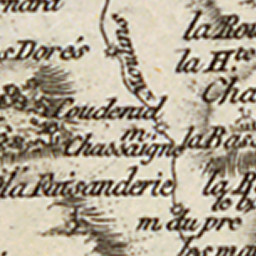 nard
s Dorés
Moulins
la Rou
la H.te
Cha
Couderud
m.
Chassaigne
la Bass
la Faisanderie
la R
le b
m du pre
les ma